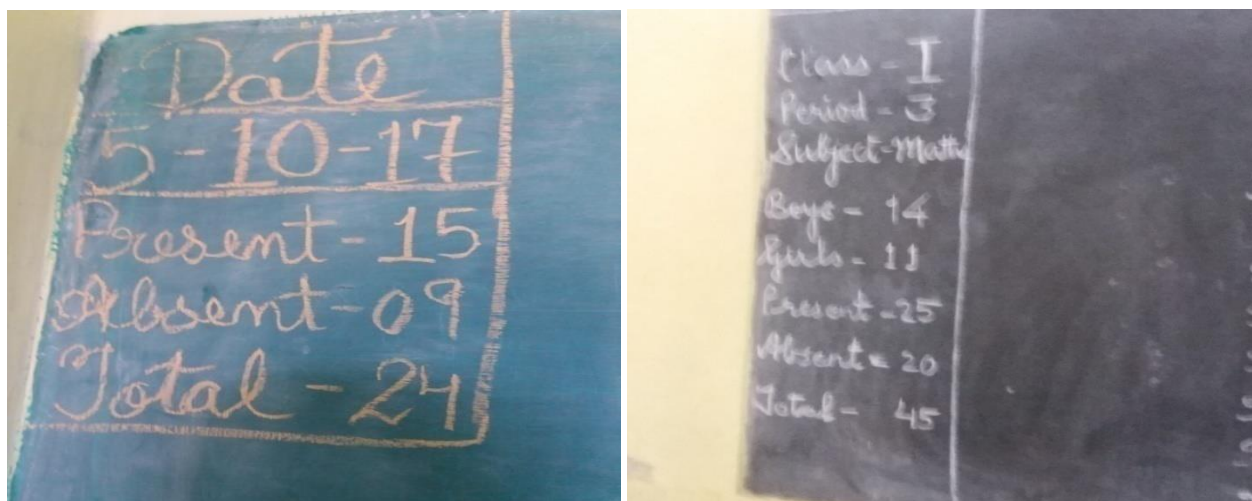 Date
5-10-17
Present-15
Absent-09
Total-24
Class-I
Period-3
Subject-Maths
Boys-14
Girls-11
Present-25
Absent-20
Total-45